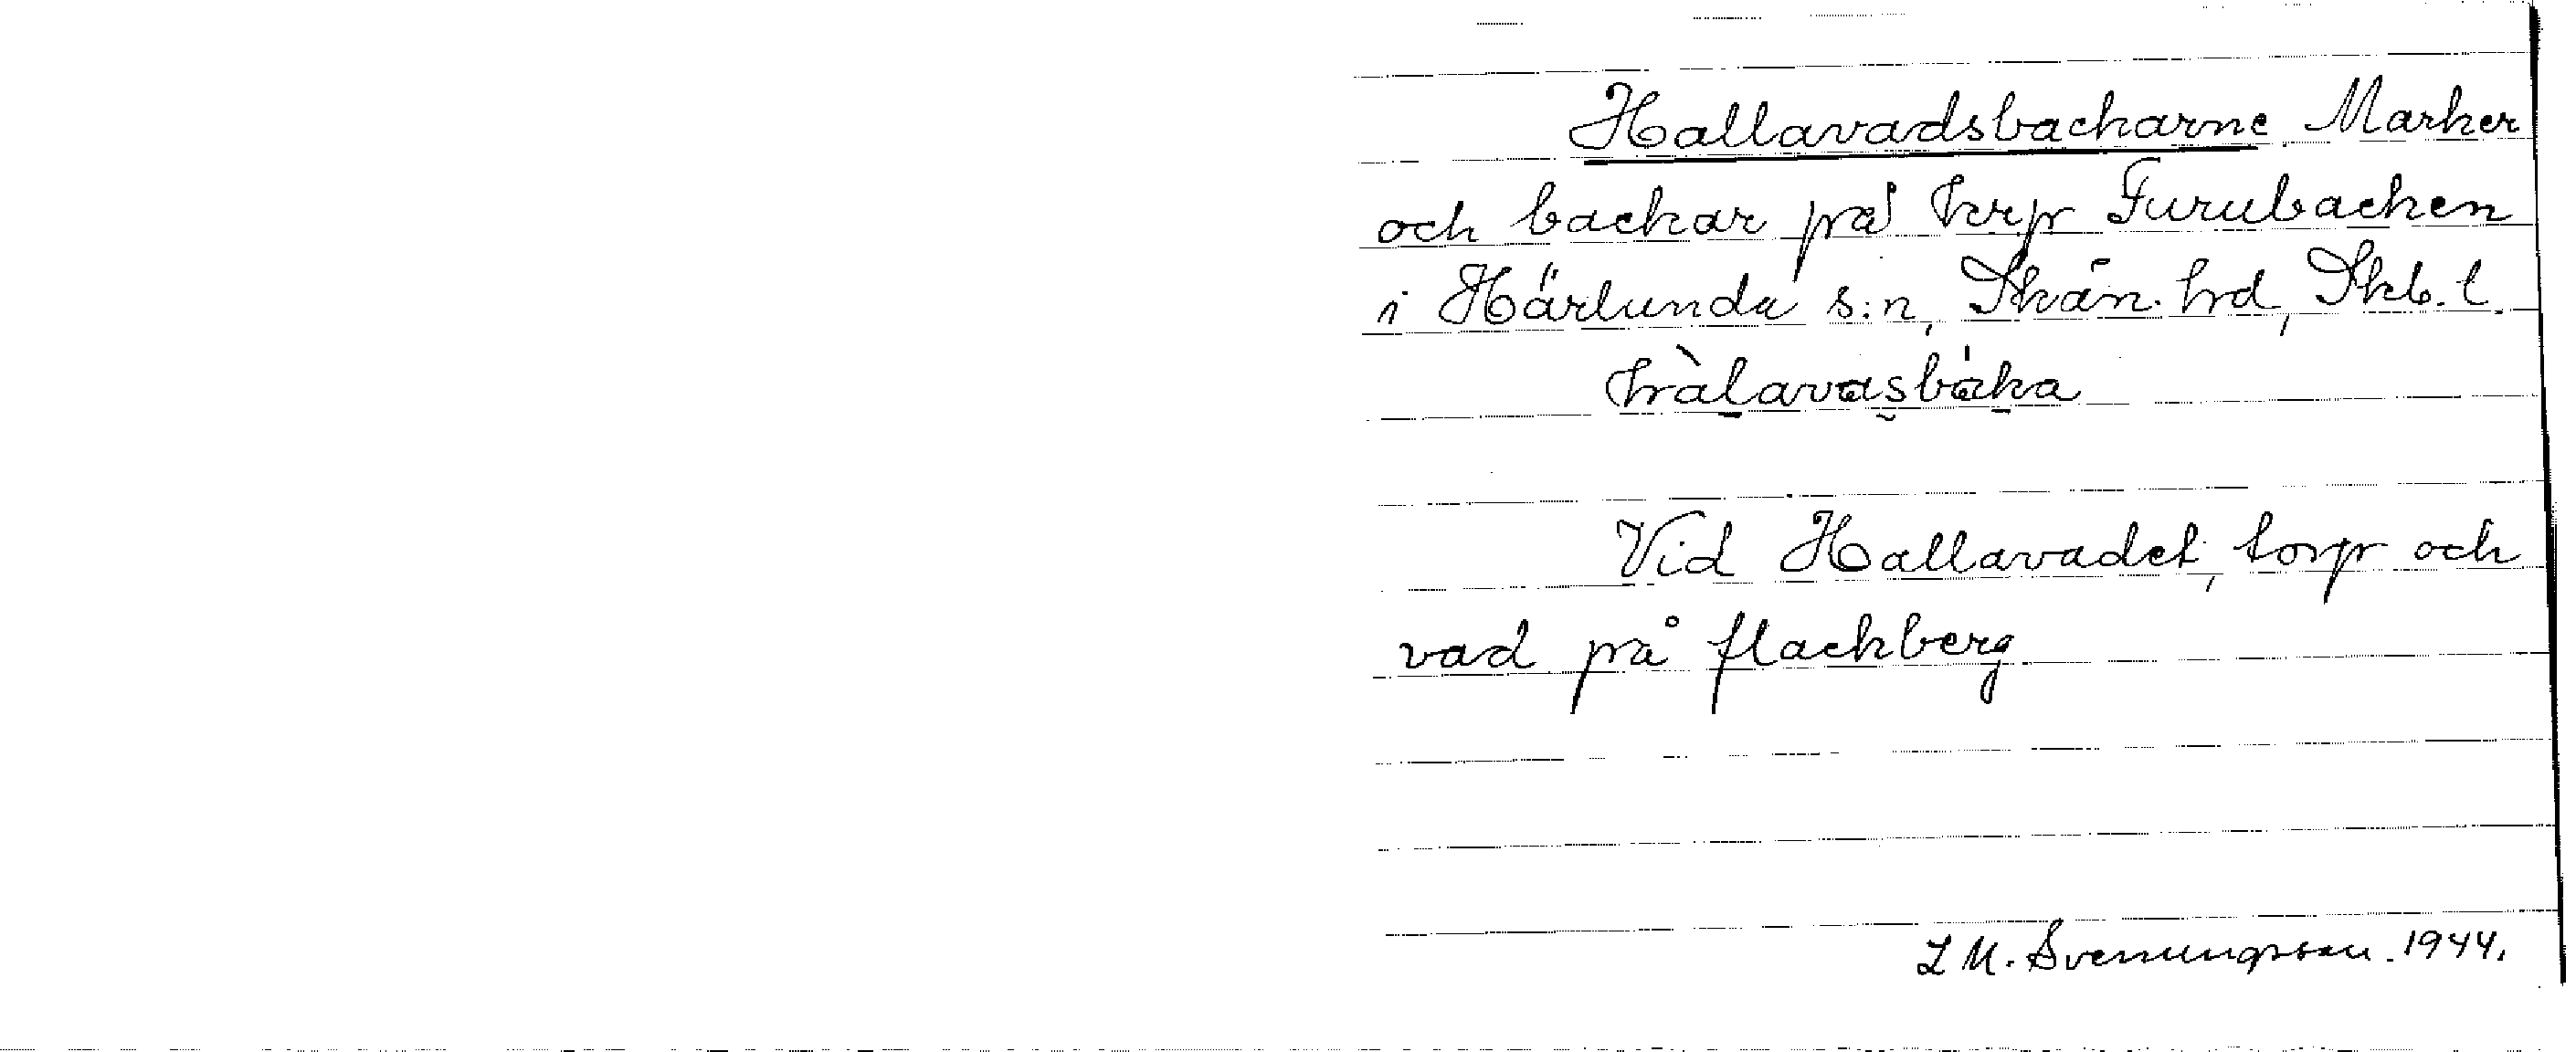 Hallavadsbackarne, Marker
och backar på krp Furubacken
i Härlunda s:n, Skån. hd, Skb. l.
hàlavasbáka
Vid Hallavadet, torp och
vad på flackberg
L M. Svenungsson. 1944.